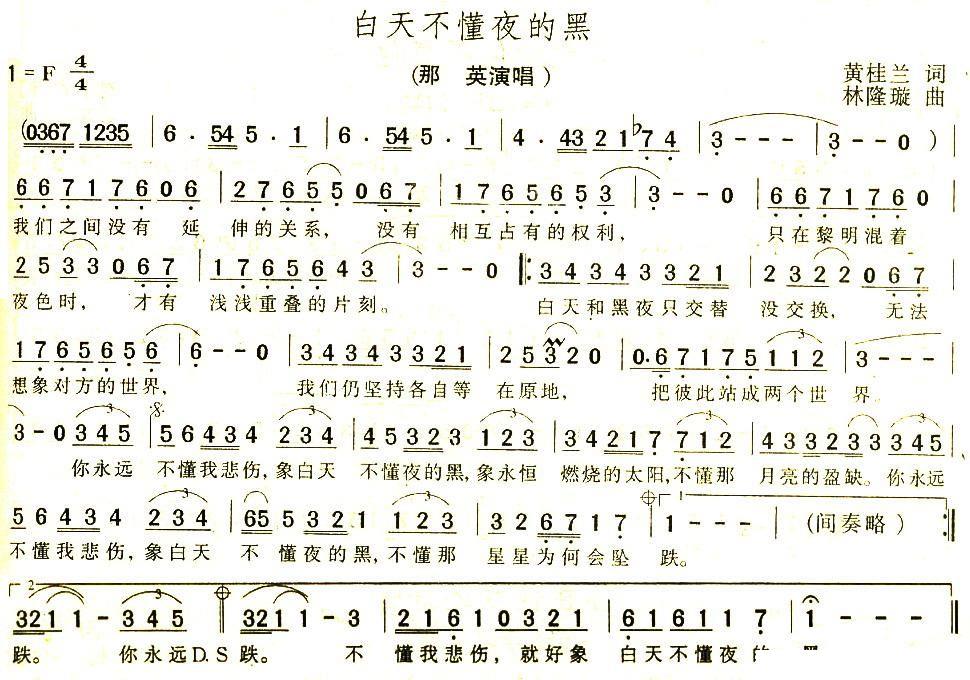 白天不懂夜的黑
1 = F 4/4 (那 英演唱) 黄桂兰 词
林隆璇 曲
(0367 1235 | 6 · 54 5 · 1 | 6 · 54 5 · 1 | 4 · 43 21 ♭74 | 3 - - - | 3 - - 0 ) |
6 6 7 1 7 6 0 6 | 2 7 6 5 5 0 6 7 | 1 7 6 5 6 5 3 | 3 - - 0 | 6 6 7 1 7 6 0
我们之间没有 延 伸的关系, 没有 相互占有的权利, 只在黎明混着
2 5 3 3 0 6 7 | 1 7 6 5 6 4 3 | 3 - - 0 |: 3 4 3 4 3 3 2 1 | 2 3 2 2 0 6 7 |
夜色时, 才有 浅浅重叠的片刻。 白天和黑夜只交替 没交换, 无法
1 7 6 5 6 5 6 | 6 - - 0 | 3 4 3 4 3 3 2 1 | 2 5 3 2 0 | 0· 6 7 1 7 5 1 1 2 | 3 - - -
想象对方的世界, 我们仍坚持各自等 在原地, 把彼此站成两个世 界。
3 - 0 3 4 5 | 5 6 4 3 4 2 3 4 | 4 5 3 2 3 1 2 3 | 3 4 2 1 7 7 1 2 | 4 3 3 2 3 3 3 4 5
你永远 不懂我悲伤,象白天 不懂夜的黑,象永恒 燃烧的太阳,不懂那 月亮的盈缺。你永远
5 6 4 3 4 2 3 4 | 65 5 3 2 1 1 2 3 | 3 2 6 7 1 7 | 1 - - - | (间奏略) :|
不懂我悲伤,象白天 不 懂夜的黑,不懂那 星星为何会坠 跌。
321 1 - 3 4 5 | 321 1 - 3 | 2 1 6 1 0 3 2 1 | 6 1 6 1 1 7 | 1 - - - ‖
跌。 你永远D.S跌。 不 懂我悲伤,就好象 白天不懂夜